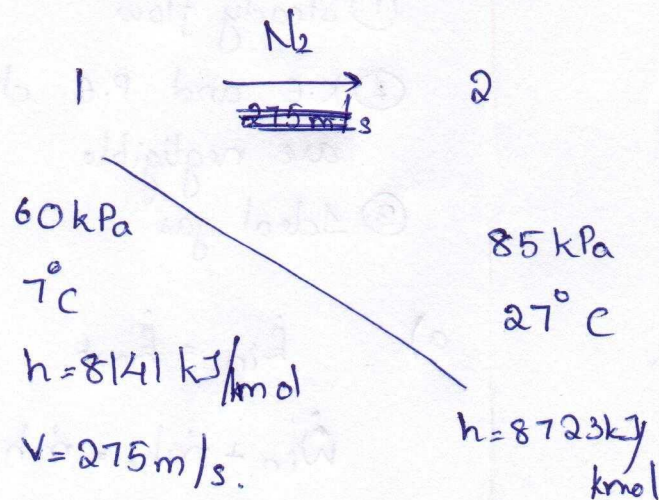 N₂
1 → 2
275 m/s
60 kPa
7°C
h = 8141 kJ/kmol
V = 275 m/s.
85 kPa
27° C
h = 8723 kJ/
kmol